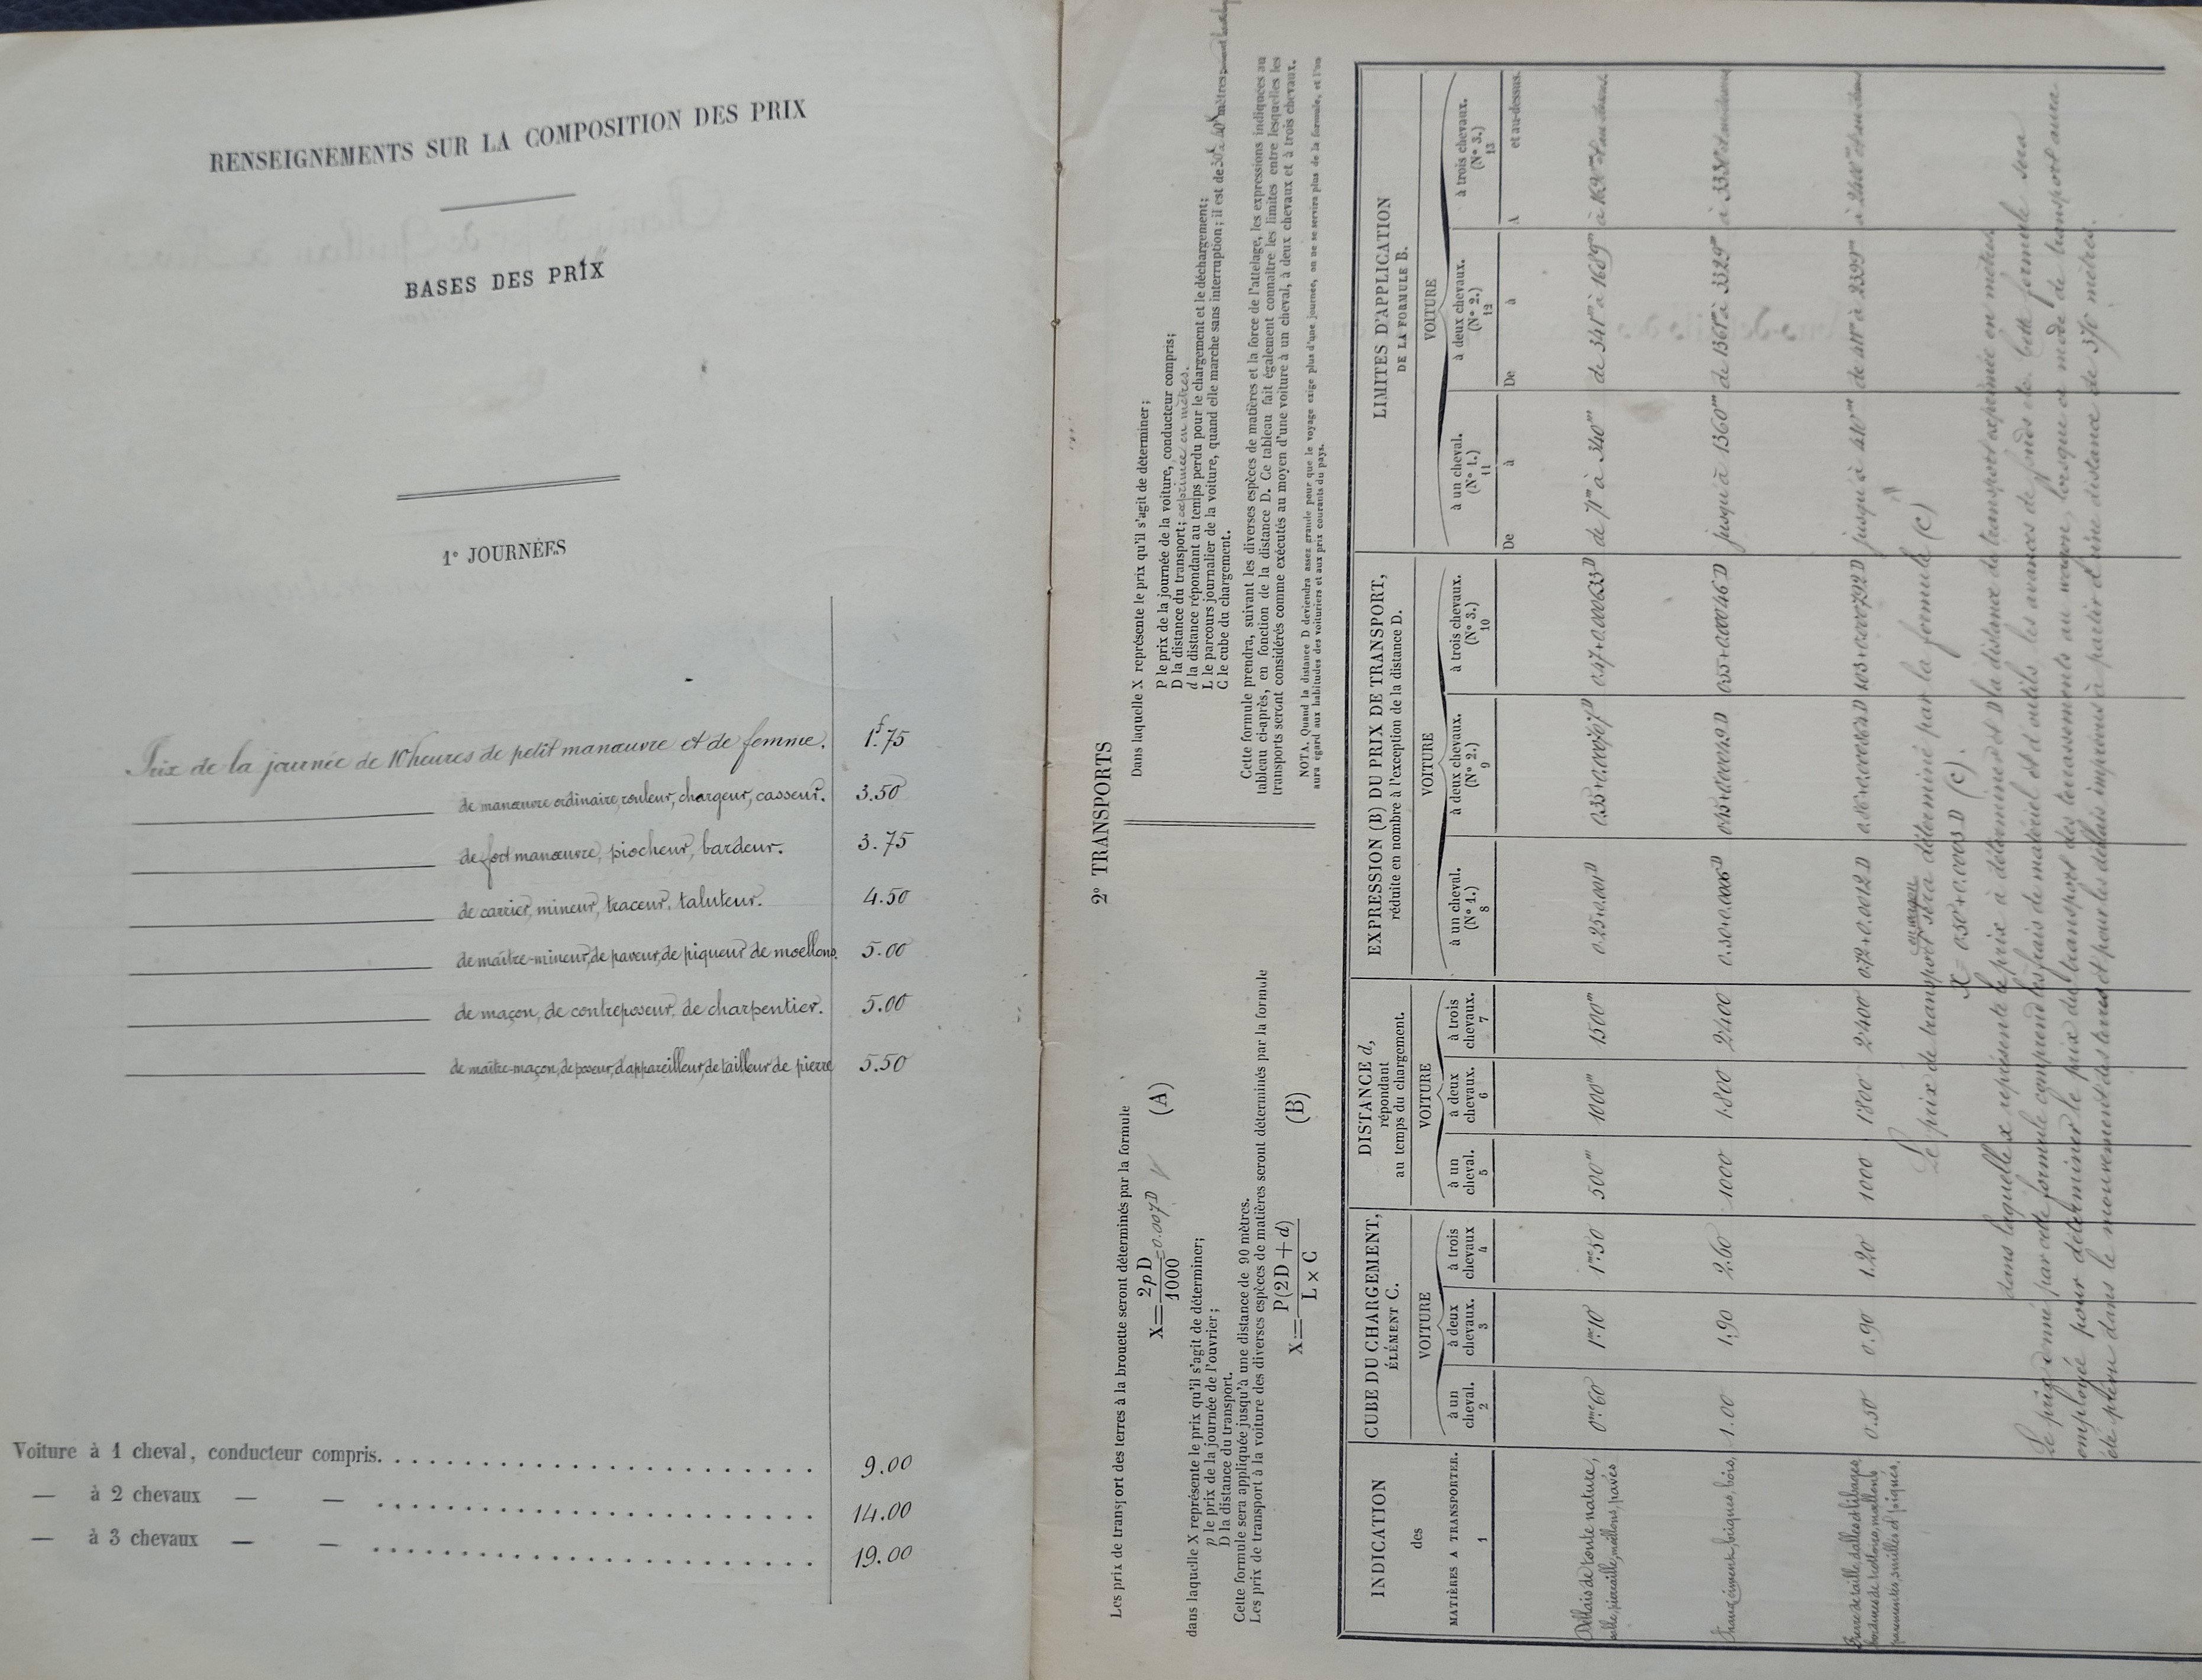 RENSEIGNEMENTS SUR LA COMPOSITION DES PRIX
BASES DES PRIX
1° JOURNÉES
Prix de la journée de 10 heures de petit manœuvre et de femme. 1f.75
de manœuvre ordinaire, rouleur, chargeur, casseur. 3.50
de fort manœuvre, piocheur, bardeur. 3.75
de carrier, mineur, traceur, taluteur. 4.50
de maître-mineur, de paveur, de piqueur de moellons. 5.00
de maçon, de contreposeur, de charpentier. 5.00
de maître-maçon, de poseur, d'appareilleur, de tailleur de pierre 5.50
Voiture à 1 cheval, conducteur compris. 9.00
— à 2 chevaux — — 14.00
— à 3 chevaux — — 19.00
2° TRANSPORTS
Les prix de transport des terres à la brouette seront déterminés par la formule
X = 2pD / 1000 = 0.007D (A)
dans laquelle X représente le prix qu'il s'agit de déterminer;
p le prix de la journée de l'ouvrier;
D la distance du transport.
Cette formule sera appliquée jusqu'à une distance de 90 mètres.
Les prix de transport à la voiture des diverses espèces de matières seront déterminés par la formule
X = P(2D + d) / L × C (B)
Dans laquelle X représente le prix qu'il s'agit de déterminer;
P le prix de la journée de la voiture, conducteur compris;
D la distance du transport; exprimée en mètres.
d la distance répondant au temps perdu pour le chargement et le déchargement;
L le parcours journalier de la voiture, quand elle marche sans interruption; il est de 30K à 40K mètres
C le cube du chargement.
Cette formule prendra, suivant les diverses espèces de matières et la force de l'attelage, les expressions indiquées au
tableau ci-après, en fonction de la distance D. Ce tableau fait également connaître les limites entre lesquelles les
transports seront considérés comme exécutés au moyen d'une voiture à un cheval, à deux chevaux et à trois chevaux.
NOTA. Quand la distance D deviendra assez grande pour que le voyage exige plus d'une journée, on ne se servira plus de la formule, et l'on
aura égard aux habitudes des voituriers et aux prix courants du pays.
INDICATION
des
MATIÈRES A TRANSPORTER.
1
CUBE DU CHARGEMENT,
ÉLÉMENT C.
VOITURE
à un cheval. 2
à deux chevaux. 3
à trois chevaux 4
DISTANCE d,
répondant
au temps du chargement.
VOITURE
à un cheval. 5
à deux chevaux. 6
à trois chevaux. 7
EXPRESSION (B) DU PRIX DE TRANSPORT,
réduite en nombre à l'exception de la distance D.
VOITURE
à un cheval. (N° 1.) 8
à deux chevaux. (N° 2.) 9
à trois chevaux. (N° 3.) 10
LIMITES D'APPLICATION
DE LA FORMULE B.
VOITURE
à un cheval. (N° 1.) 11
à deux chevaux. (N° 2.) 12
à trois chevaux. (N° 3.) 13
De à De à A et au-dessus.
Déblais de toute nature,
sable, pierraille, moellons, pavés
0mc60 1mc10 1mc50 500m 1000m 1500m 0.25+0.001D 0.35+0.00071D 0.47+0.00063D de 71m à 340m de 341m à 1689m à 1690m et au dessus
Chaux, ciment, briques, bois, 1.00 1.90 2.60 1000 1800 2400 0.30+0.0006D 0.45+0.00049D 0.55+0.00046D jusqu'à 1360m de 1361m à 3329m à 3330m et au dessus
Pierre de taille, dalles et libages,
bordures de trottoirs, moellons
parementés, smillés et piqués,
0.50 0.90 1.20 1000 1800 2400 0.72+0.0012D jusqu'à 410m de 411m à 2399m à 2400m et au dessus
Le prix de transport en wagon sera déterminé par la formule (C)
X = 0.50+0.0003 D (C).
dans laquelle x représente le prix à déterminer et D la distance de transport exprimée en mètres.
Le prix donné par cette formule comprend les frais de matériel et d'outils, les avances de fonds etc. Cette formule sera
employée pour déterminer le prix du transport des terrassements au wagon, lorsque ce mode de transport aura
été prévu dans le mouvement des terres et pour les déblais imprévus à partir d'une distance de 370 mètres.